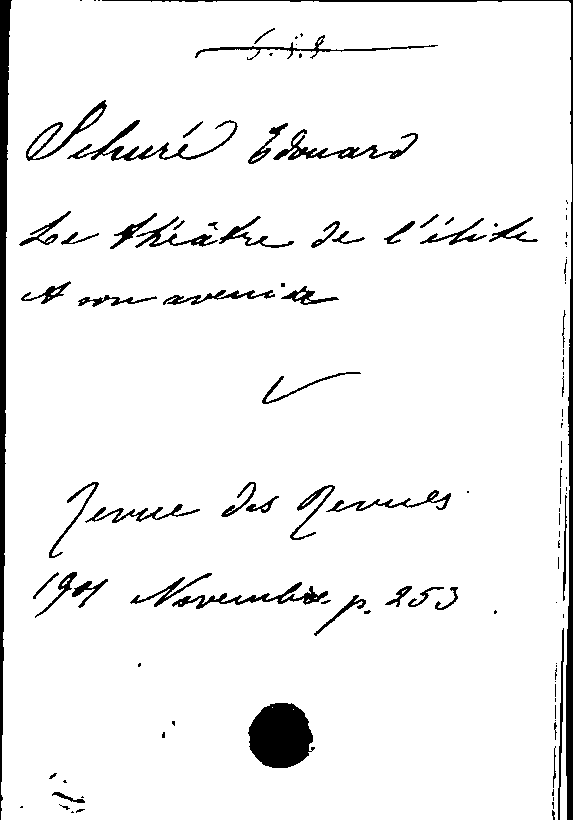 Schuré Edouard
Le théâtre de l'élite
et son avenir
Revue des Revues
1901 Novembre p. 253